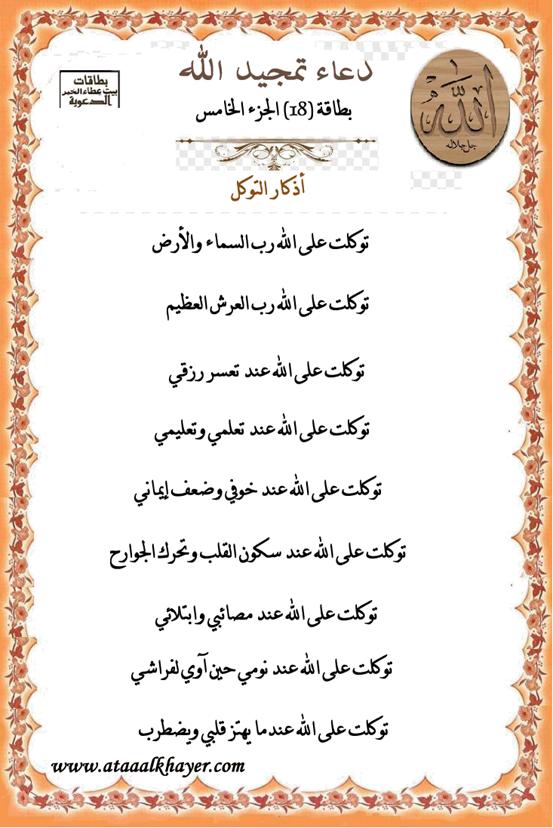 دعاء تمجيد الله
بطاقة (18) الجزء الخامس
بطاقات
بيت عطاء الخير
الدعوية
الله
جل جلاله
أذكار التوكل
توكلت على الله رب السماء والأرض
توكلت على الله رب العرش العظيم
توكلت على الله عند تعسر رزقي
توكلت على الله عند تعلمي وتعليمي
توكلت على الله عند خوفي وضعف إيماني
توكلت على الله عند سكون القلب وتحرك الجوارح
توكلت على الله عند مصائبي وابتلائي
توكلت على الله عند نومي حين آوي لفراشي
توكلت على الله عندما يهتز قلبي ويضطرب
www.ataaalkhayer.com